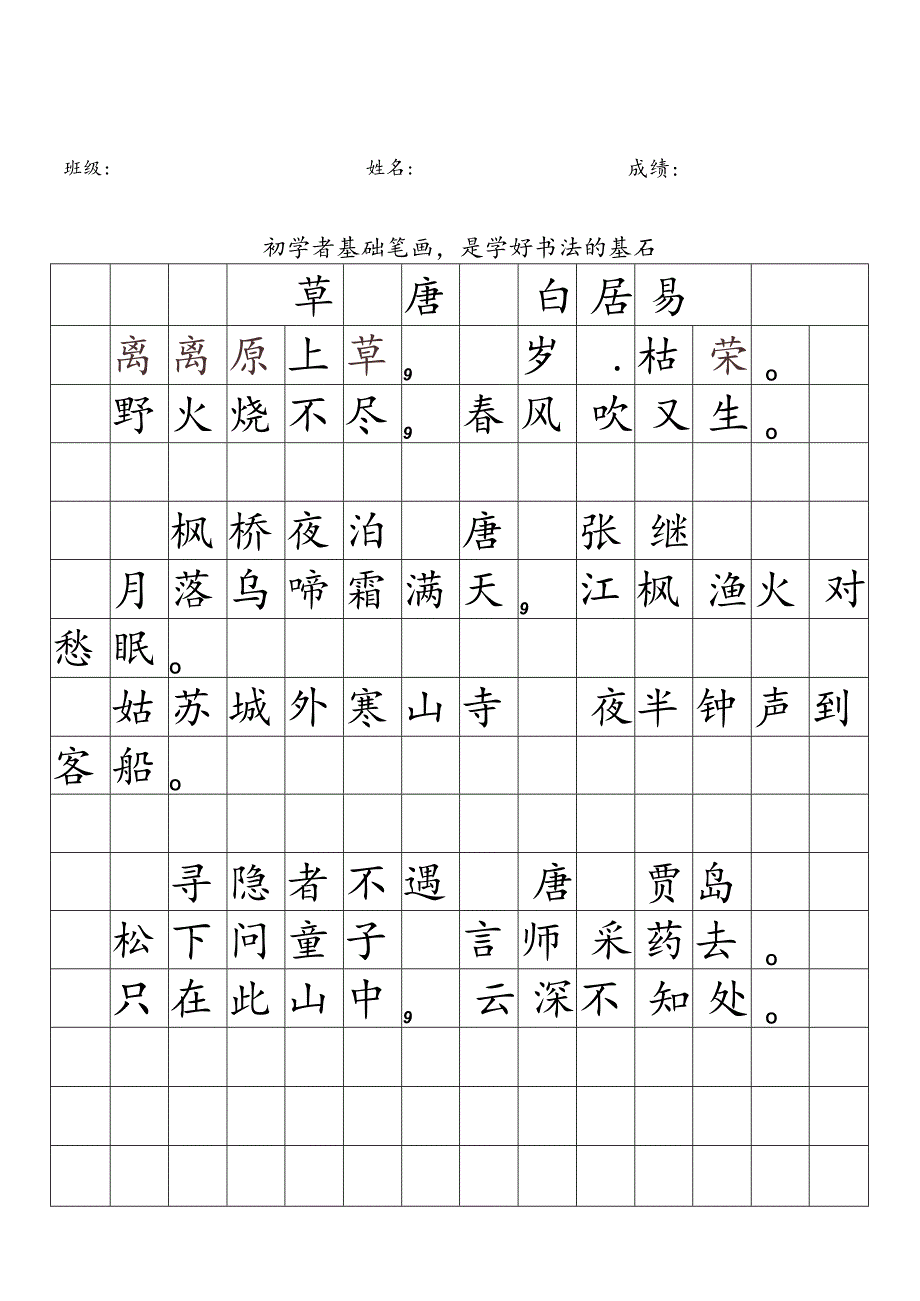 班级： 姓名： 成绩：
初学者基础笔画，是学好书法的基石
草 唐 白居易
离离原上草9 岁.枯荣。
野火烧不尽9 春风吹又生。
枫桥夜泊 唐 张继
月落乌啼霜满天9江枫渔火对
愁眠。
姑苏城外寒山寺 夜半钟声到
客船。
寻隐者不遇 唐 贾岛
松下问童子 言师采药去。
只在此山中9 云深不知处。